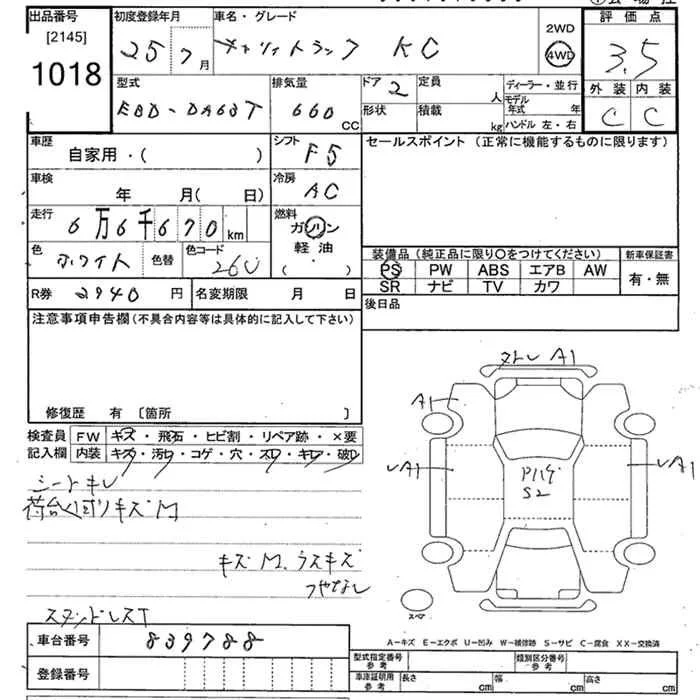 出品番号 初度登録年月 車名・グレード 2WD 評価点
[2145] 25 7月 キャリイトラック KC 4WD 3.5
1018
型式 排気量 ドア 2 定員 人 ディーラー・並行 外装 内装
EBD-DA63T 660 CC 形状 積載 kg モデル年式 年 C C
ハンドル 左・右
車歴 シフト セールスポイント (正常に機能するものに限ります)
自家用・( ) F5
車検 冷房
年 月( 日) AC
走行 燃料
6万6千670km ガソリン
色 色替 色コード 軽油
ホワイト 26U ( )
装備品 (純正品に限り○をつけてください) 新車保証書
PS PW ABS エアB AW 有・無
SR ナビ TV カワ
R券 2940円 名変期限 月 日 後日品
注意事項申告欄 (不具合内容等は具体的に記入して下さい)
修復歴 有 〔箇所 〕
検査員 FW キズ・飛石・ヒビ割・リペア跡・×要
記入欄 内装 キズ・汚レ・コゲ・穴・スレ・キレ・破レ
シートキレ
キズM
キズM、ウスキズ
ツヤなし
A1
A1
A1
A1
S2
スペア
A-キズ E-エクボ U-凹み W-補修跡 S-サビ C-腐食 XX-交換済
車台番号 839788
登録番号
型式指定番号 参考 類別区分番号 参考
車庫証明用 参考 長さ cm 幅 cm 高さ cm